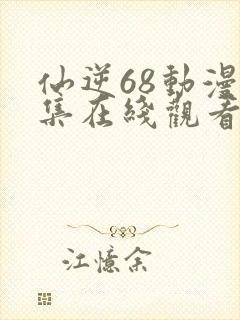 仙逆68動漫
集在綫觀看
江憶余